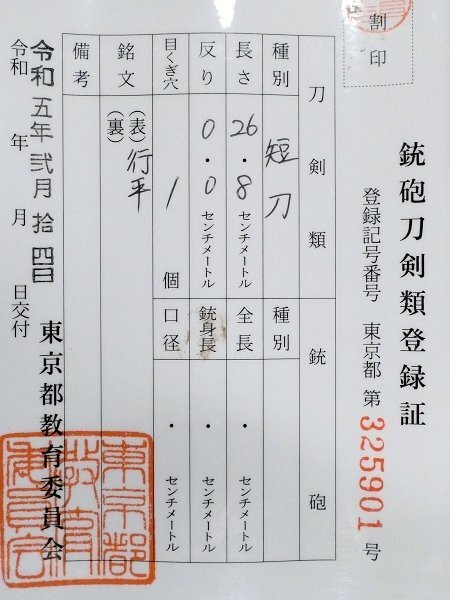 割印
銃砲刀剣類登録証
登録記号番号 東京都 第 325901 号
刀剣類 銃砲
種別 短刀 種別
長さ 26・8 センチメートル 全長 ・ センチメートル
反り 0・0 センチメートル 銃身長 ・ センチメートル
目くぎ穴 1 個 口径 ・ センチメートル
銘文 (表) 行平
(裏)
備考
令和五年弐月拾四日
令和 年 月 日交付
東京都教育委員会
東京都教育委員会